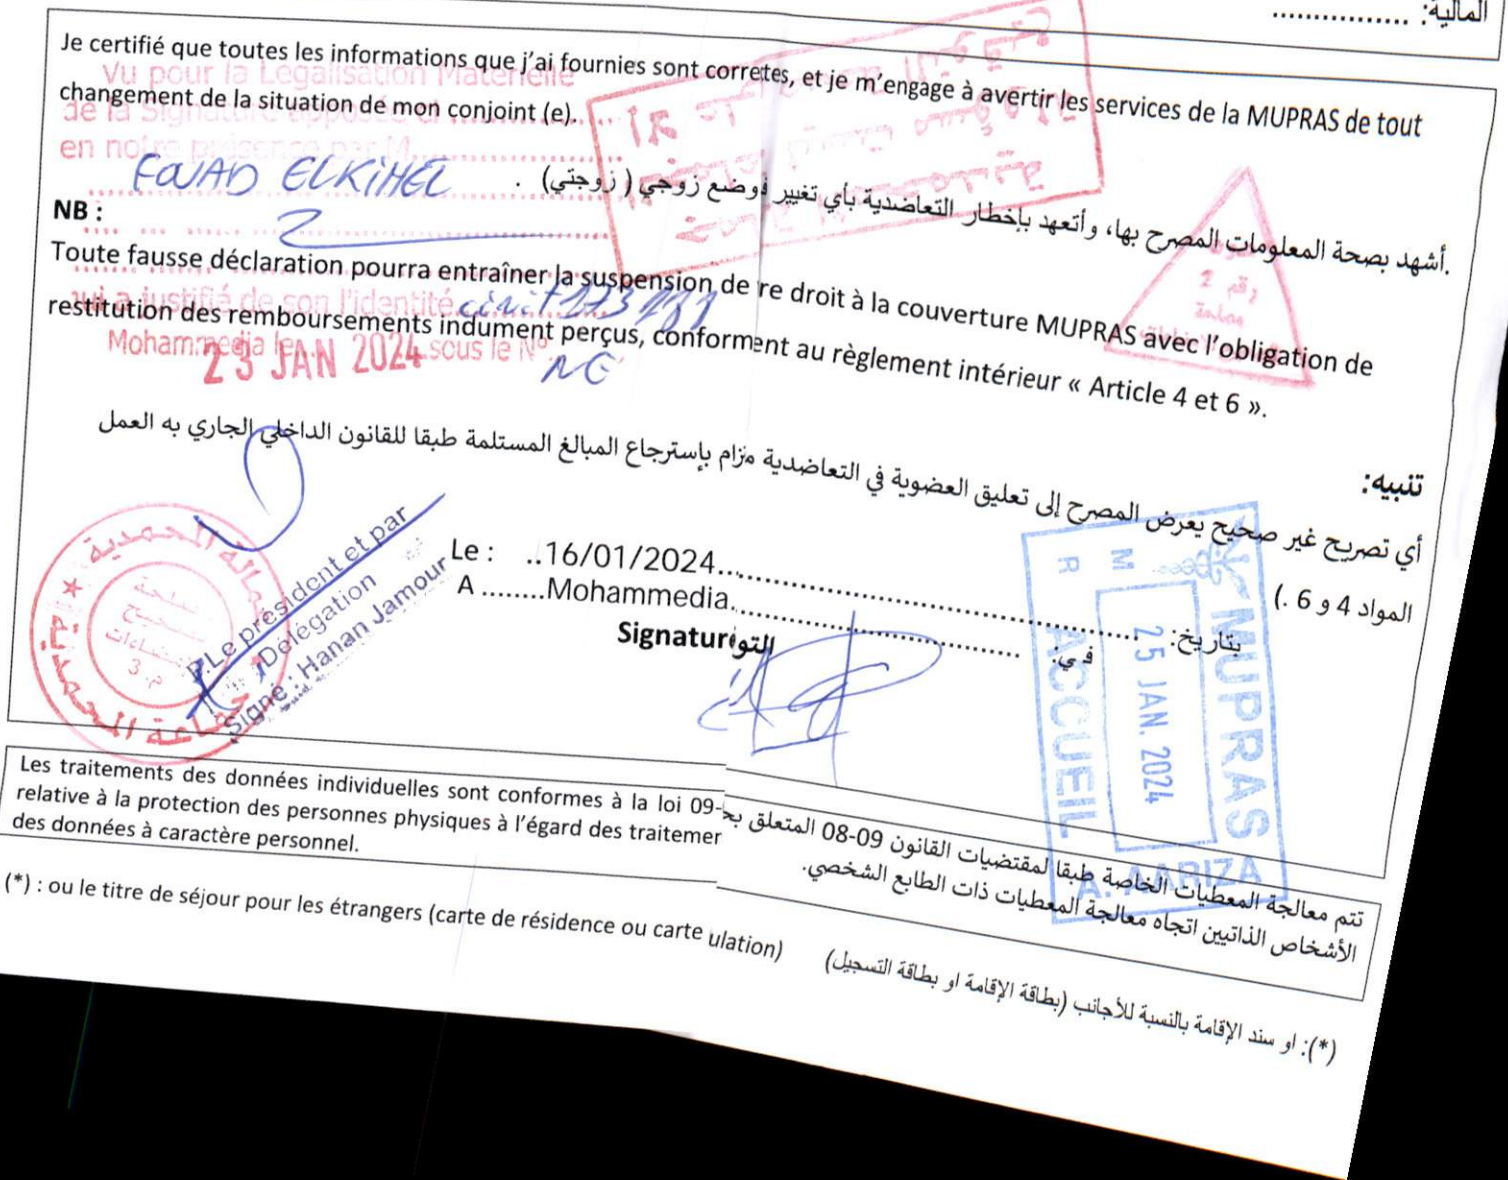 المالية: ................
Je certifié que toutes les informations que j'ai fournies sont corretes, et je m'engage à avertir les services de la MUPRAS de tout
Vu pour la Légalisation Matérielle
changement de la situation de mon conjoint (e).
de la Signature apposée
en notre présence par M
FOUAD ELKIHEL
أشهد بصحة المعلومات المصرح بها، وأتعهد بإخطار التعاضدية بأي تغيير فوضع زوجي ( زوجتي) .
NB :
Toute fausse déclaration pourra entraîner la suspension de re droit à la couverture MUPRAS avec l'obligation de
qui a justifié de son l'identité
restitution des remboursements indument perçus, conforment au règlement intérieur « Article 4 et 6 ».
Mohammedia le 23 JAN 2024 sous le N°
تنبيه:
أي تصريح غير صحيح يعرض المصرح إلى تعليق العضوية في التعاضدية مزام بإسترجاع المبالغ المستلمة طبقا للقانون الداخلي الجاري به العمل
المواد 4 و 6 .)
Le : ..16/01/2024.. بتاريخ:
A ........Mohammedia. في:
Signature التو
P.Le président et par
Délégation
Signé : Hanan Jamour
عمالة المحمدية
جماعة المحمدية
م. 3
MUPRAS
25 JAN. 2024
ACCUEIL
M
R
A. AARIZA
Les traitements des données individuelles sont conformes à la loi 09-
relative à la protection des personnes physiques à l'égard des traitemer
des données à caractère personnel.
تتم معالجة المعطيات الخاصة طبقا لمقتضيات القانون 09-08 المتعلق بح
الأشخاص الذاتيين اتجاه معالجة المعطيات ذات الطابع الشخصي.
(*) : ou le titre de séjour pour les étrangers (carte de résidence ou carte ulation)
(*): او سند الإقامة بالنسبة للأجانب (بطاقة الإقامة او بطاقة التسجيل)